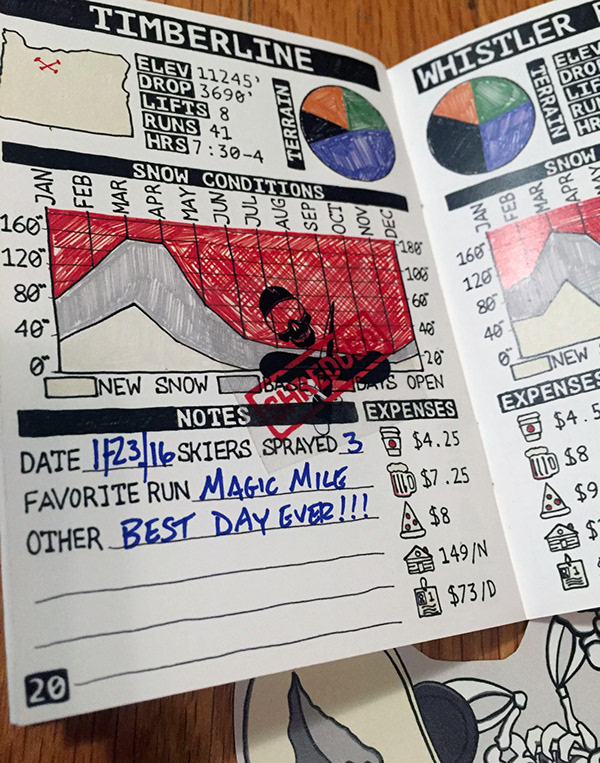 TIMBERLINE
ELEV 11245'
DROP 3690'
LIFTS 8
RUNS 41
HRS 7:30-4
TERRAIN
SNOW CONDITIONS
JAN FEB MAR APR MAY JUN JUL AUG SEP OCT NOV DEC
160"
120"
80"
40"
0"
180"
100"
60"
40"
20"
NEW SNOW BASE DAYS OPEN
SHREDDED
NOTES
DATE 1/23/16 SKIERS SPRAYED 3
FAVORITE RUN MAGIC MILE
OTHER BEST DAY EVER!!!
EXPENSES
$4.25
$7.25
$8
149/N
$73/D
20
WHISTLER
ELEV
DROP
LIF
RUN
HR
TERRAIN
SNOW
JAN FEB MAR APR MAY
160"
120"
80"
40"
0"
NEW
EXPENSES
$4.5
$8
$9